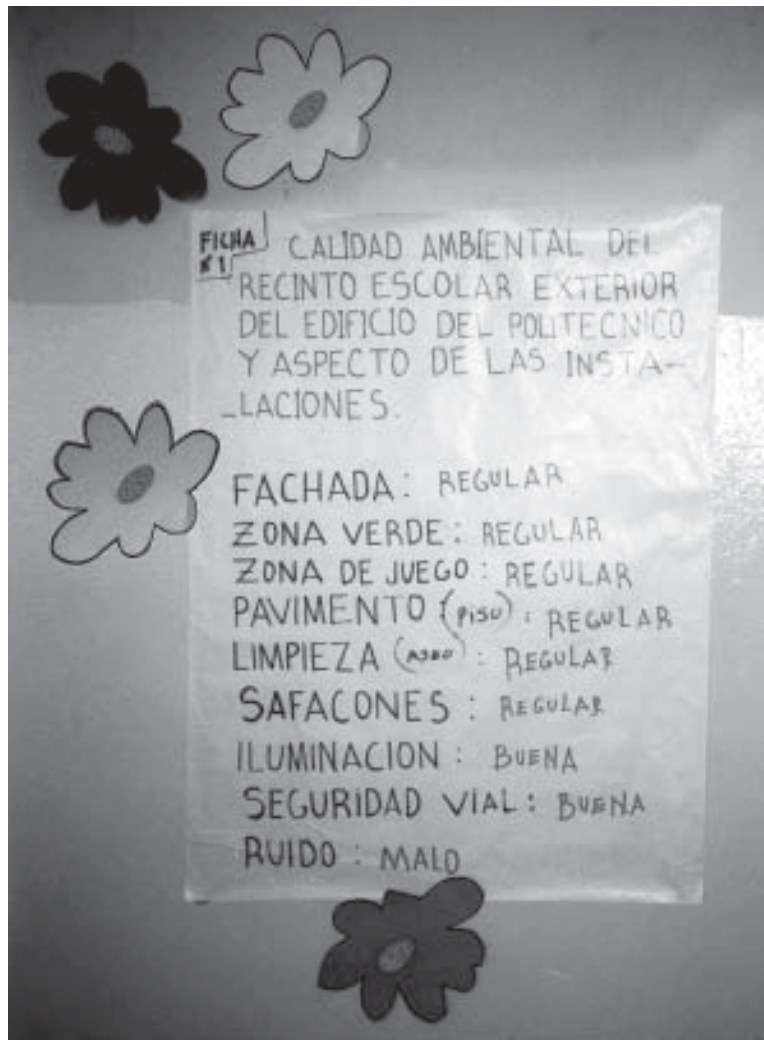 FICHA
# 1
CALIDAD AMBIENTAL DEL
RECINTO ESCOLAR EXTERIOR
DEL EDIFICIO DEL POLITECNICO
Y ASPECTO DE LAS INSTA-
-LACIONES.
FACHADA: REGULAR
ZONA VERDE: REGULAR
ZONA DE JUEGO: REGULAR
PAVIMENTO (PISO): REGULAR
LIMPIEZA (ASEO): REGULAR
SAFACONES: REGULAR
ILUMINACION: BUENA
SEGURIDAD VIAL: BUENA
RUIDO: MALO